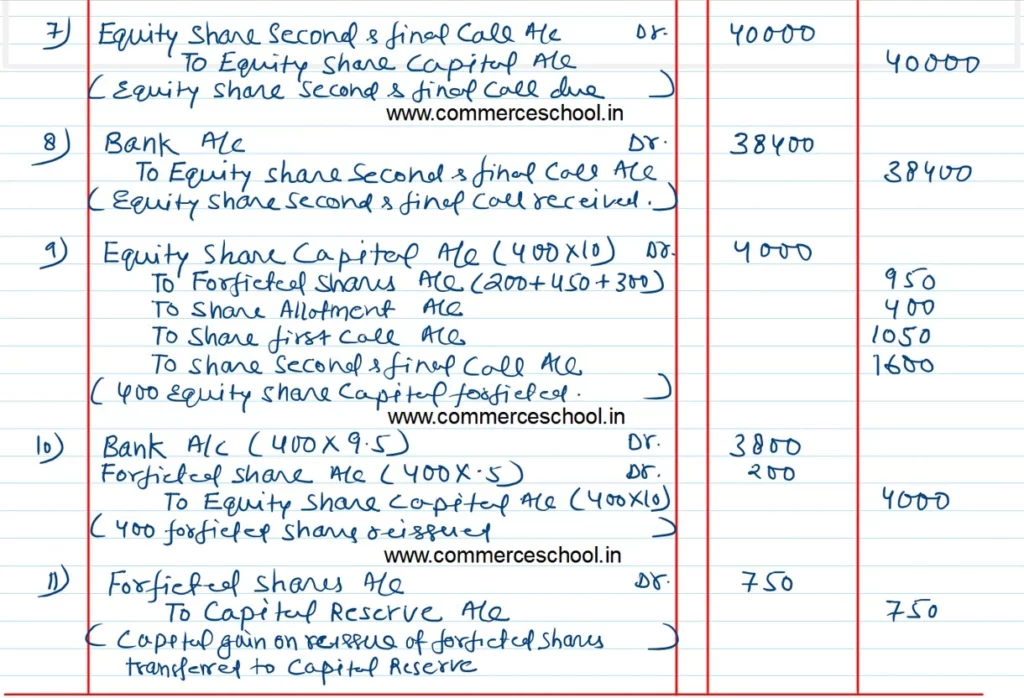 7) Equity Share Second & final Call A/c Dr. 40000
To Equity Share Capital A/c 40000
( Equity Share Second & final Call due )
www.commerceschool.in
8) Bank A/c Dr. 38400
To Equity Share Second & final Call A/c 38400
( Equity Share Second & final Call received. )
9) Equity Share Capital A/c (400x10) Dr. 4000
To Forficted Shares A/c (200+450+300) 950
To Share Allotment A/c 400
To Share first Call A/c 1050
To Share Second & final Call A/c 1600
( 400 Equity Share Capital forficted. )
www.commerceschool.in
10) Bank A/c (400 x 9.5) Dr. 3800
Forficted Share A/c (400 x .5) Dr. 200
To Equity Share Capital A/c (400x10) 4000
( 400 forficted Shares reissued )
www.commerceschool.in
11) Forficted Shares A/c Dr. 750
To Capital Reserve A/c 750
( Capital gain on reissue of forficted Shares )
transferred to Capital Reserve